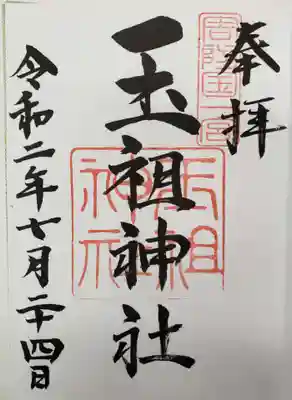 奉拝
周防国一宮
玉祖神社
玉祖神社
令和二年七月二十四日